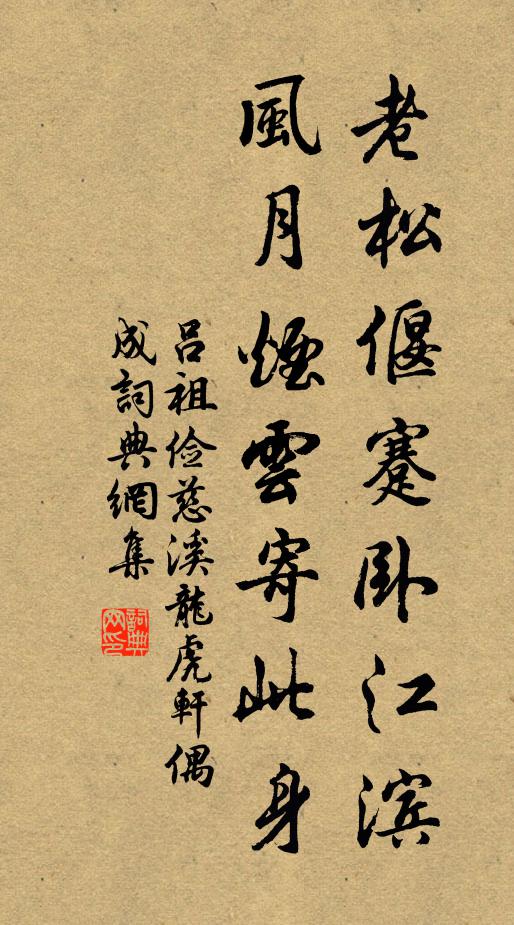 老松偃蹇卧江滨
風月煙雲寄此身
吕祖俭慈溪龍虎軒偶
成詞典網集
詞典网印